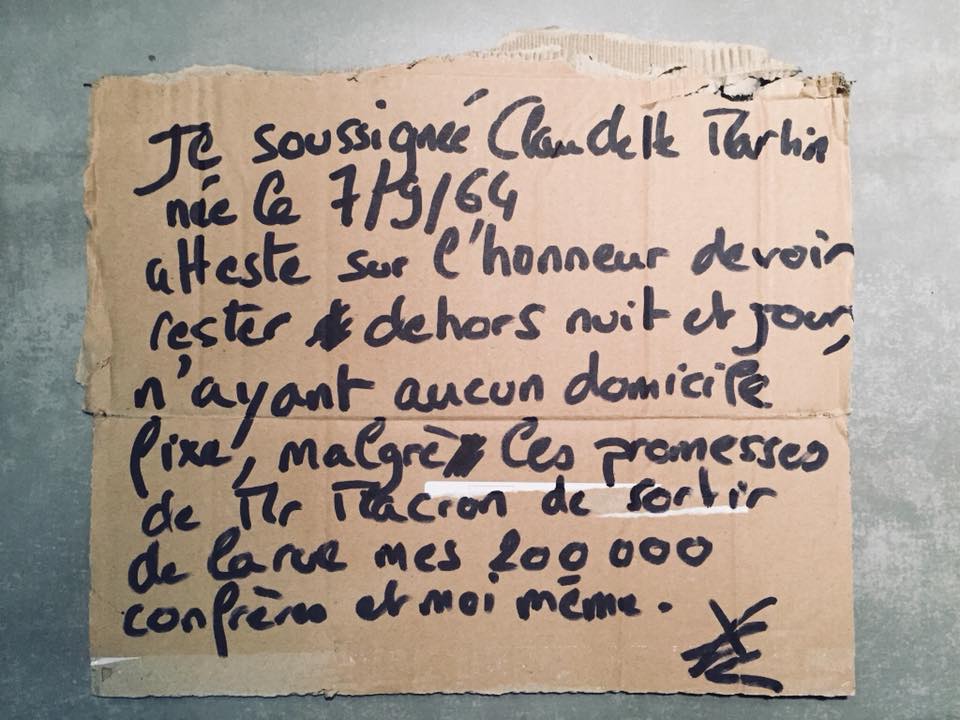 Je soussignée Claudette Martin
née le 7/9/64
atteste sur l'honneur devoir
rester dehors nuit et jour,
n'ayant aucun domicile
fixe, malgrè les promesses
de Mr Macron de sortir
de la rue mes 200 000
confrères et moi même.